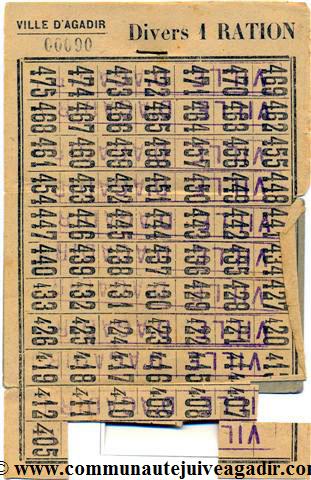 VILLE D'AGADIR
00090
Divers 1 RATION
475 474 473 472 471 470 469
468 467 466 465 464 463 462
461 460 459 458 457 456 455
454 453 452 451 450 449 448
447 446 445 444 443 442 441
440 439 438 437 436 435 434
433 432 431 430 429 428 427
426 425 424 423 422 421 420
419 418 417 416 415 414
412 411 410 409 408 407
405
VIL
© www.communautejuiveagadir.com